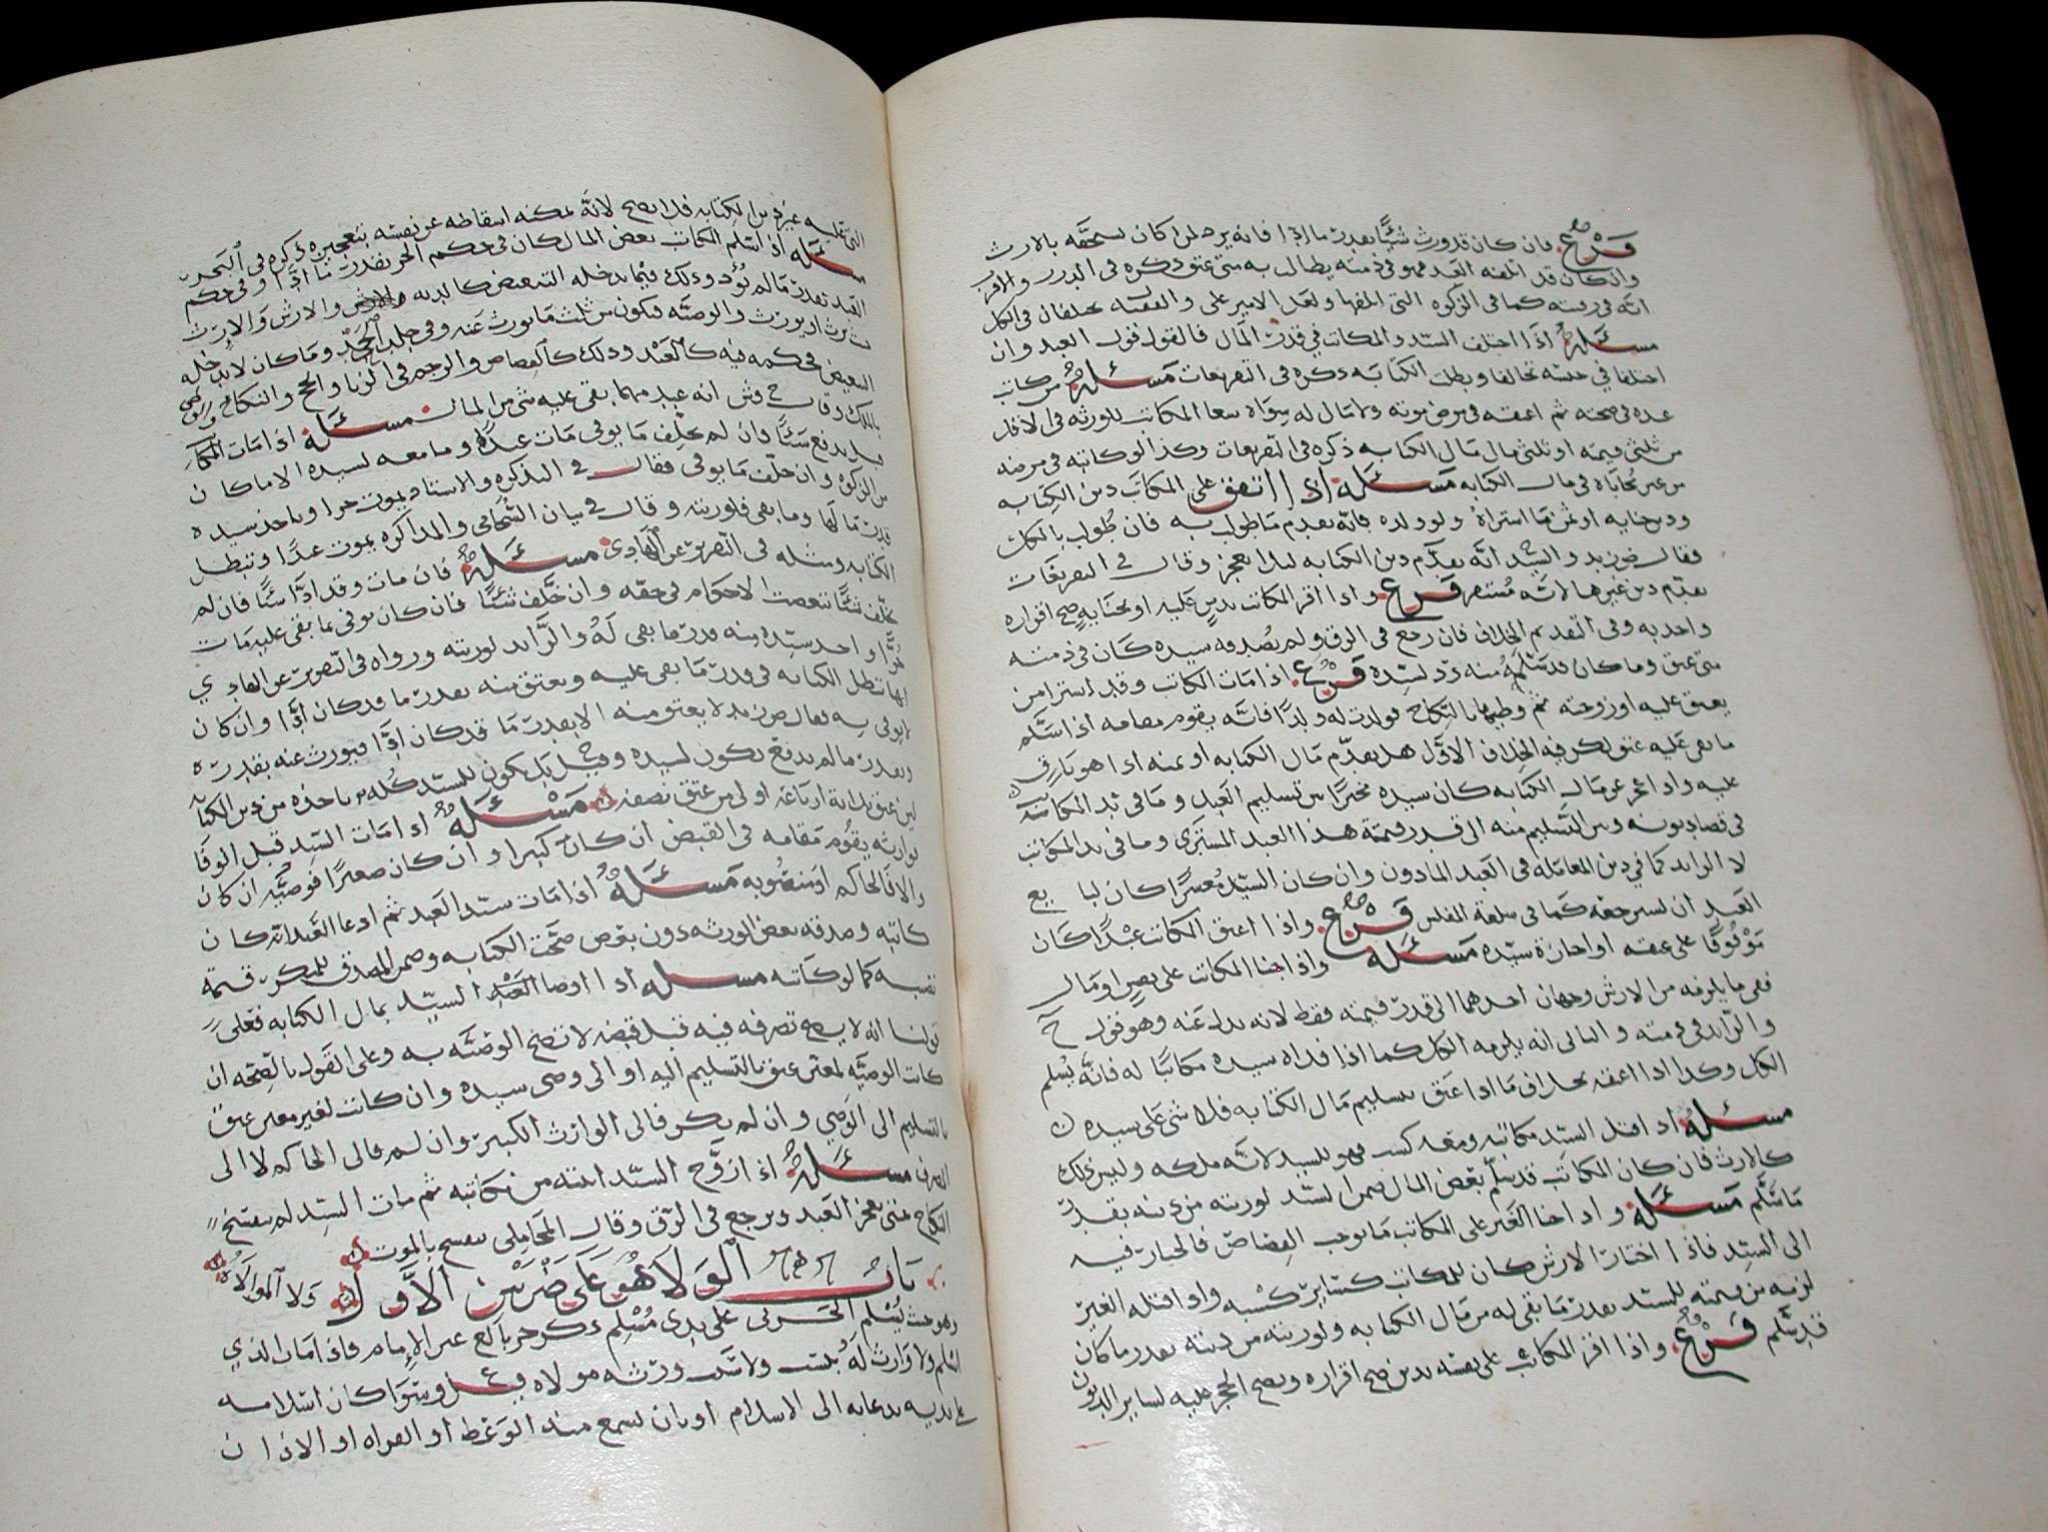 فرع فان كان قد ورث شيئا بقدر ما ادا فانه يرد لمن كان يستحقه بالارث
وان كان قد اتلفه العبد فهو في ذمته يطالب به متى عتق ذكره في الدرر
انه في رقبته كما في الزكوه التي اتلفها ولعل الامير علي والفقيه يختلفان في الكل
مسئلة اذا اختلف السيد والمكاتب في قدر المال فالقول قول العبد وان
اختلفا في جنسه تحالفا وبطلت الكتابه ذكره في التفريعات مسئلة من كاتب
عبده في صحته ثم اعتقه في مرض موته ولا مال له سواه سعا المكاتب للورثه في الاقل
من ثلثي قيمته او ثلثي مال الكتابه ذكره في التفريعات وكذا لو كاتبه في مرضه
من غير محاباه في مال الكتابه مسئلة اذا اتفق على المكاتب دين الكتابه
ودين جنايه او ثمن ما اشتراه ولو ولده فانه يقدم ما طولب به فان طولب بالكل
فقال ض زيد والسيد انه يقدم دين الكتابه ليلا يعجز وقال في التفريعات
يقدم دين غيرها لانه مستقر فرع واذا اقر المكاتب بدين عليه او بجنايه صح اقراره
واخذ به وفي التقديم الخلاف فان رجع في الرق ولم يصدقه سيده كان في ذمته
متى عتق وما كان قد سلمه منه رد لسيده فرع اذا مات المكاتب وقد اشترا من
يعتق عليه او زوجته ثم وطيها بالنكاح فولدت له ولدا فانه يقوم مقامه اذا سلم
ما بقي عليه عتق لكن فيه الخلاف الاول هل يقدم مال الكتابه او ثمنه اذا هو باق
عليه واذا عجز عن مال الكتابه كان سيده مخيرا بين تسليم العبد وما في يد المكاتب
في قضا ديونه وبين التسليم منه الى قدر قيمة هذا العبد المشترى وما في يد المكاتب
لا الزايد كما في دين المعامله في العبد الماذون وان كان السيد معسرا كان لبايع
العبد ان يسترجعه كما في سلعة المفلس فرع واذا اعتق المكاتب عبدا كان
موقوفا على عتقه او اجازة سيده مسئلة واذا جنا المكاتب على نفس او مال
ففي ما يلزمه من الارش وجهان احدهما الى قدر قيمته فقط لانه بدل عنه وهو قول ح
والزايد في ذمته والثاني انه يلزمه الكل كما اذا فداه سيده مكاتبا له فانه يسلم
الكل وكذا اذا اعتقه بخلاف ما اذا عتق بتسليم مال الكتابه فلا شي على سيده
مسئلة اذا قتل السيد مكاتبه ومعه كسب فهو للسيد لانه ملكه وليس ذلك
كالارث فان كان المكاتب قد سلم بعض المال ضمن السيد لورثته من ديته بقدر
ما سلم مسئلة واذا جنا الغير على المكاتب ما يوجب القصاص فالخيار فيه
الى السيد فاذا اختار الارش كان للمكاتب كساير كسبه واذا قتله الغير
لزمه من قيمته للسيد بقدر ما بقي له من مال الكتابه ولورثته من ديته بقدر ما كان
قد سلم فرع واذا اقر المكاتب على نفسه بدين صح اقراره ويصح الحجر عليه لساير الديون
عن دين الكتابه فلا يصح لانه يمكنه اسقاطه عن نفسه بتعجيزه ذكره في البحر
مسئلة اذا سلم المكاتب بعض المال كان في حكم الحر بقدر ما ادا وفي حكم
العبد بقدر ما لم يؤد وذلك فيما يدخله التبعيض كالديه والارش والارث
يرث او يورث والوصيه فيكون من ثلث ما يورث عنه وفي جلد الحد وما كان لا يدخله
التبعيض فحكمه فيه كالعبد وذلك كالقصاص والرجم في الزنا والحج والنكاح والوطي
بالملك وقال ح وش انه عبد مهما بقي عليه شي من المال مسئلة اذا مات المكاتب
ولم يخلف ما يوفي مات عبدا وما معه لسيده الا ما كان
وان خلف ما يوفي فقال في التذكره والاستاد يموت حرا وياخذ سيده
وما بقي فلورثته وقال في بيان السحامي والمذاكره يموت عبدا وتبطل
الكتابه ومثله في التقرير عن الهادي مسئلة فان مات وقد ادا شيئا فان لم
يخلف شيئا تبعضت الاحكام في حقه وان خلف شيئا فان كان يوفي بما بقي عليه مات
حرا واخذ سيده منه قدر ما بقي له والزايد لورثته ورواه في التقرير عن الهادي
انها تبطل الكتابه في قدر ما بقي عليه ويعتق منه بقدر ما قد كان ادا وان كان
لا يوفي به فقال ض زيد لا يعتق منه الا بقدر ما قد كان ادا فيورث عنه بقدره
وبقدر ما لم يدفع يكون لسيده وقيل بل يكون للسيد كله ياخذه من دين الكتابه
مسئلة اذا مات السيد قبل الوفا
فوارثه يقوم مقامه في القبض ان كان كبيرا وان كان صغيرا فوصيه ان كان
والا فالحاكم او منصوبه مسئلة اذا مات سيد العبد ثم ادعا العبد انه كان
كاتبه وصدقه بعض الورثه دون بعض صحت الكتابه وضمن المصدق للمنكر قيمة
نصيبه كما لو كاتبه مسئله اذا اوصا السيد بمال الكتابه فعلى
قولنا انه لا يصح تصرفه فيه قبل قبضه لا تصح الوصيه به وعلى القول بالصحه ان
كانت الوصيه لمعين عتق بالتسليم اليه او الى وصي سيده وان كانت لغير معين عتق
بالتسليم الى الوصي وان لم يكن فالى الوارث الكبير وان لم فالى الحاكم لا الى
المصرف مسئلة اذا زوج السيد ابنته من مكاتبه ثم مات السيد لم ينفسخ
النكاح حتى يعجز العبد ويرجع في الرق وقال المحاملي ينفسخ بالموت
باب الولا هو على ضربين الاول ولا الموالاه
وهو حيث يسلم الحربي على يدي مسلم ذكر حر بالغ غير الامام فاذا مات الذي
اسلم ولا وارث له بنسب ولا سبب ورثه مولاه فرع وسوا كان اسلامه
على يديه بدعايه الى الاسلام او بان يسمع منه الوعظ او القراه او الاذان